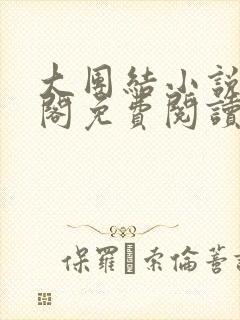 大團結小說
閣免費閱讀
保羅 索倫著